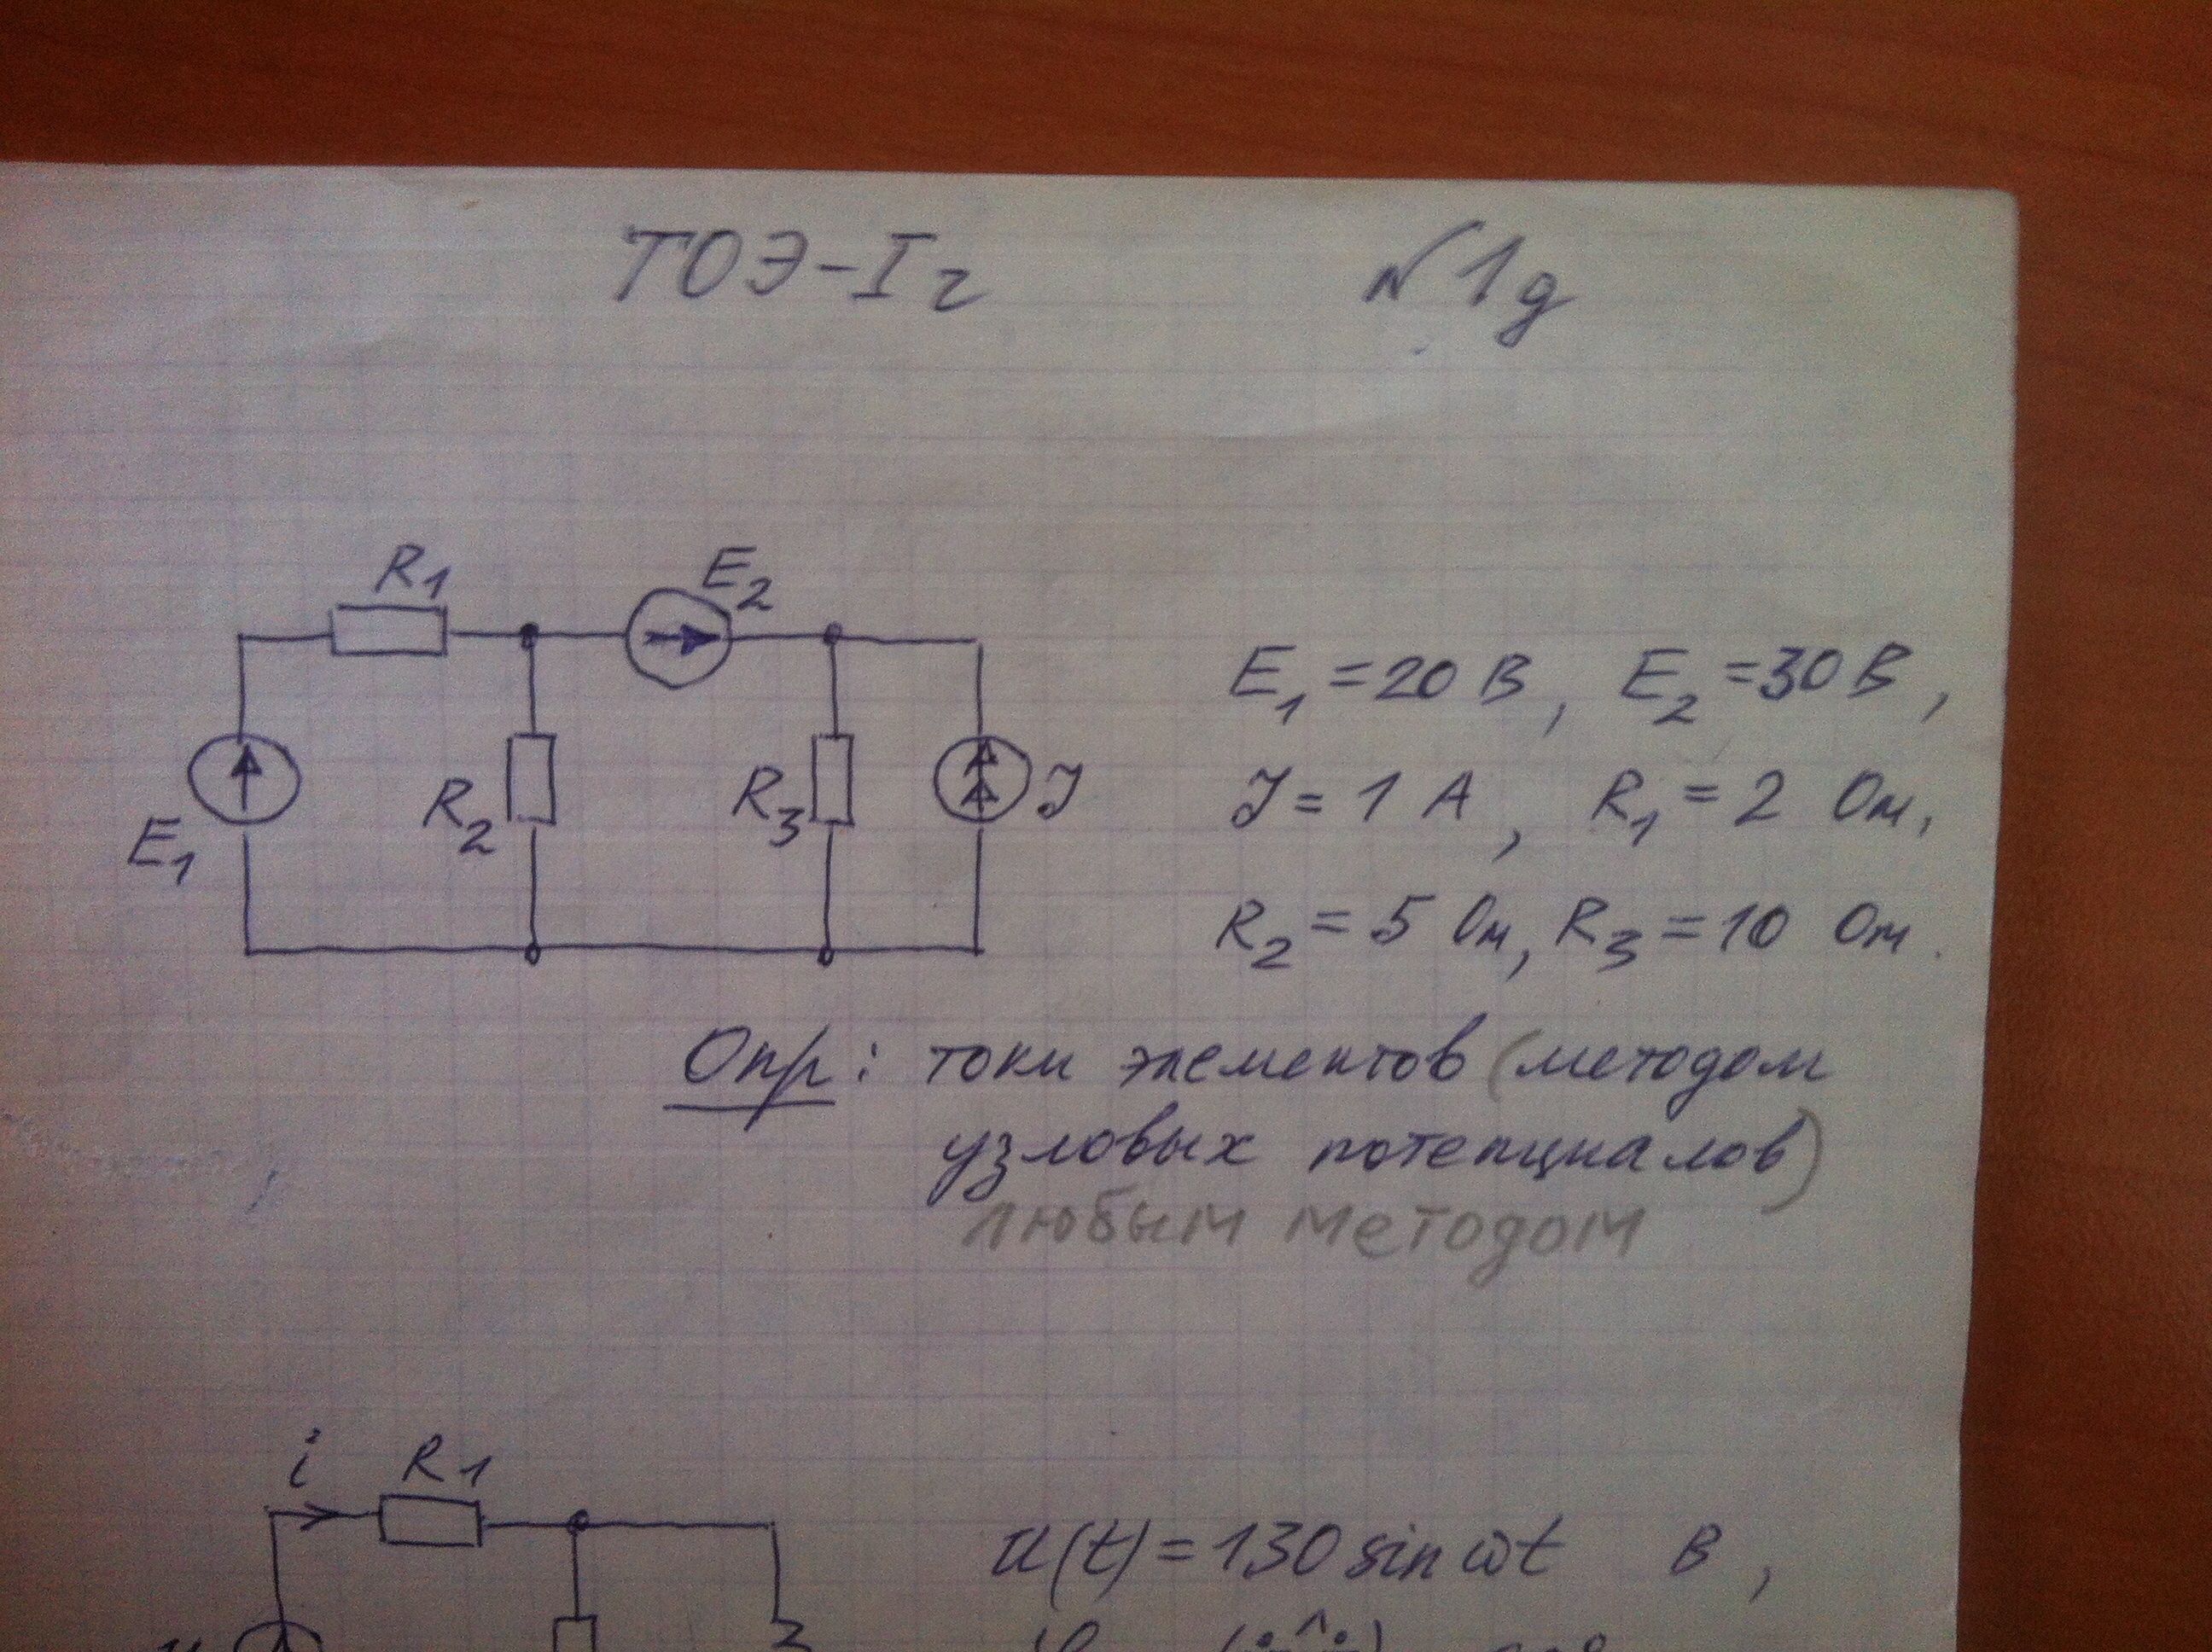 ТОЭ-Iг N1д
R1 E2
E1 R2 R3 J
E1 = 20 В, E2 = 30 В,
J = 1 А, R1 = 2 Ом,
R2 = 5 Ом, R3 = 10 Ом.
Опр: токи элементов (методом
узловых потенциалов)
любым методом
i R1
u(t) = 130 sin ωt В,